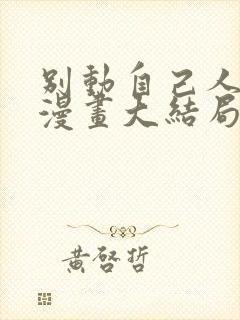 別動自己人
漫畫大結局
黃啓哲